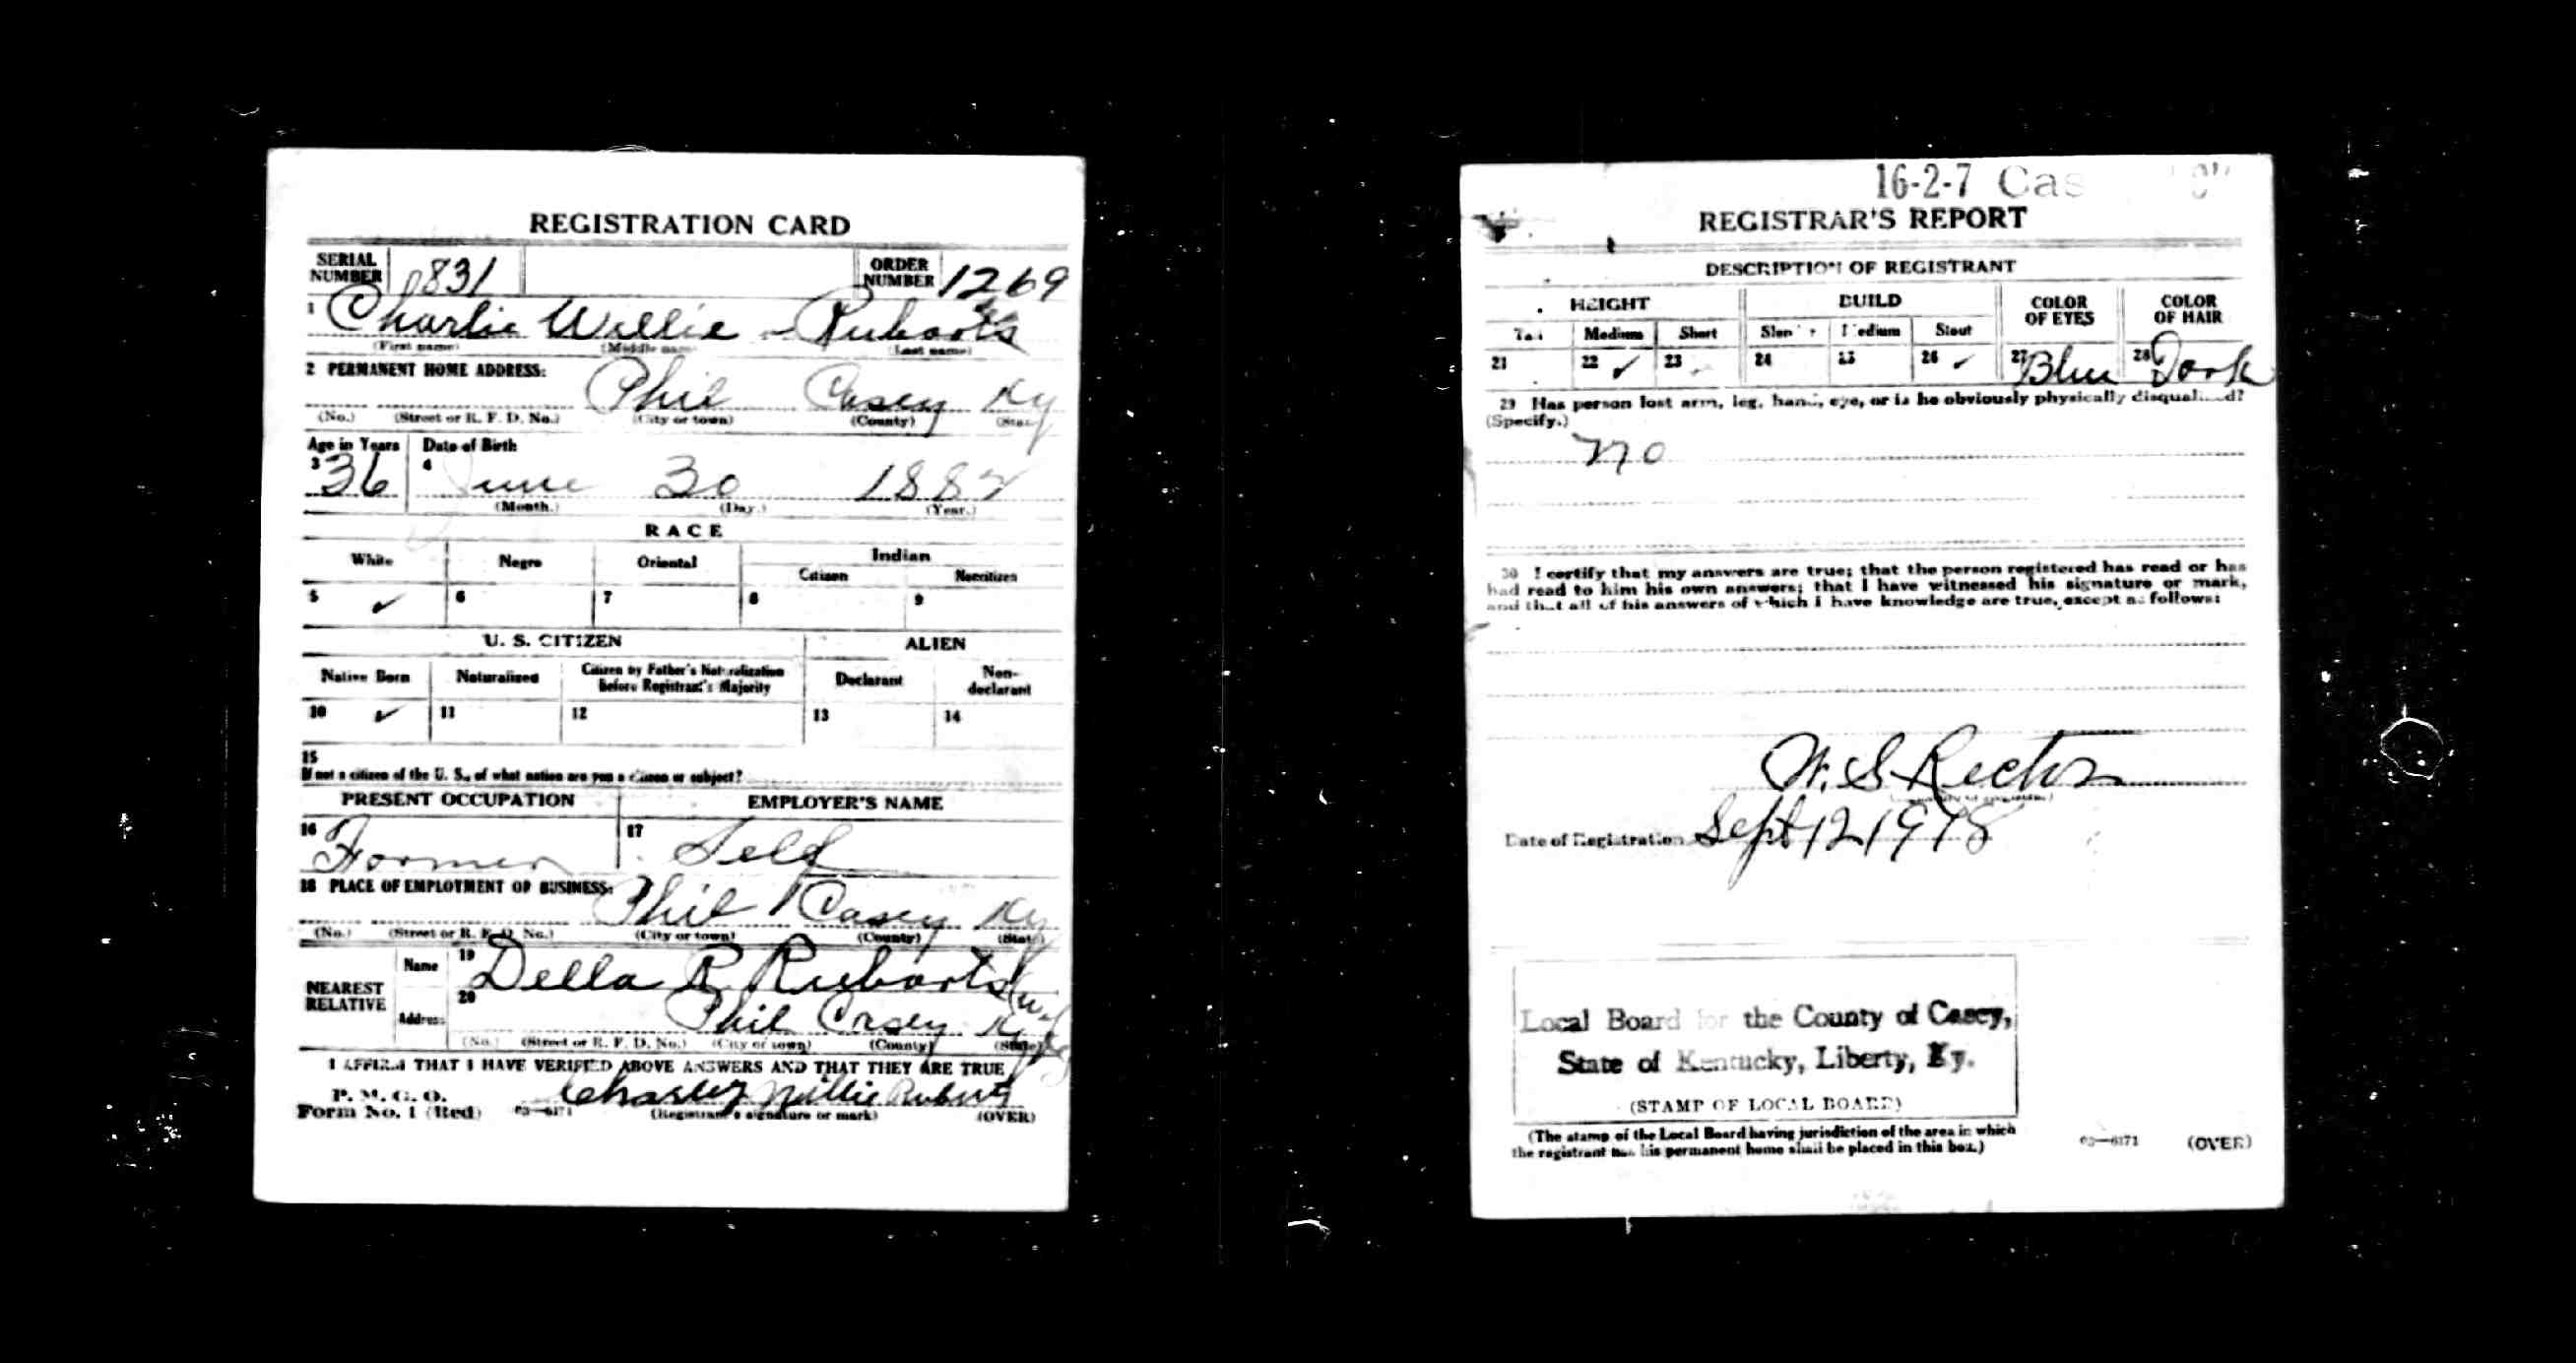 REGISTRATION CARD
SERIAL NUMBER 831 ORDER NUMBER 1269
1 Charlie Willie Rubarts
(First name) (Middle name) (Last name)
2 PERMANENT HOME ADDRESS:
Phil Casey Ky
(No.) (Street or R. F. D. No.) (City or town) (County) (State)
Age in Years Date of Birth
3 36 4 June 30 1882
(Month.) (Day.) (Year.)
RACE
White Negro Oriental Indian
Citizen Noncitizen
5 ✓ 6 7 8 9
U. S. CITIZEN ALIEN
Native Born Naturalized Citizen by Father's Naturalization Before Registrant's Majority Declarant Non-declarant
10 ✓ 11 12 13 14
15
If not a citizen of the U. S., of what nation are you a citizen or subject?
PRESENT OCCUPATION EMPLOYER'S NAME
16 Farmer 17 Self
18 PLACE OF EMPLOYMENT OR BUSINESS:
Phil Casey Ky
(No.) (Street or R. F. D. No.) (City or town) (County) (State)
NEAREST RELATIVE
Name 19 Della R Rubarts
Address 20 Phil Casey Ky
(No.) (Street or R. F. D. No.) (City or town) (County) (State)
I AFFIRM THAT I HAVE VERIFIED ABOVE ANSWERS AND THAT THEY ARE TRUE
P. M. G. O.
Form No. 1 (Red) 03—6171 Charley Willie Rubarts
(Registrant's signature or mark) (OVER)
16-2-7 Cas
REGISTRAR'S REPORT
DESCRIPTION OF REGISTRANT
HEIGHT BUILD COLOR OF EYES COLOR OF HAIR
Tall Medium Short Slender Medium Stout
21 22 ✓ 23 24 25 26 ✓ 27 Blue 28 Dark
29 Has person lost arm, leg, hand, eye, or is he obviously physically disqualified?
(Specify.)
no
30 I certify that my answers are true; that the person registered has read or has
had read to him his own answers; that I have witnessed his signature or mark,
and that all of his answers of which I have knowledge are true, except as follows:
W. S. Rector
Date of Registration Sept 12 1918
Local Board for the County of Casey,
State of Kentucky, Liberty, Ky.
(STAMP OF LOCAL BOARD)
(The stamp of the Local Board having jurisdiction of the area in which
the registrant has his permanent home shall be placed in this box.)
03—6171 (OVER)